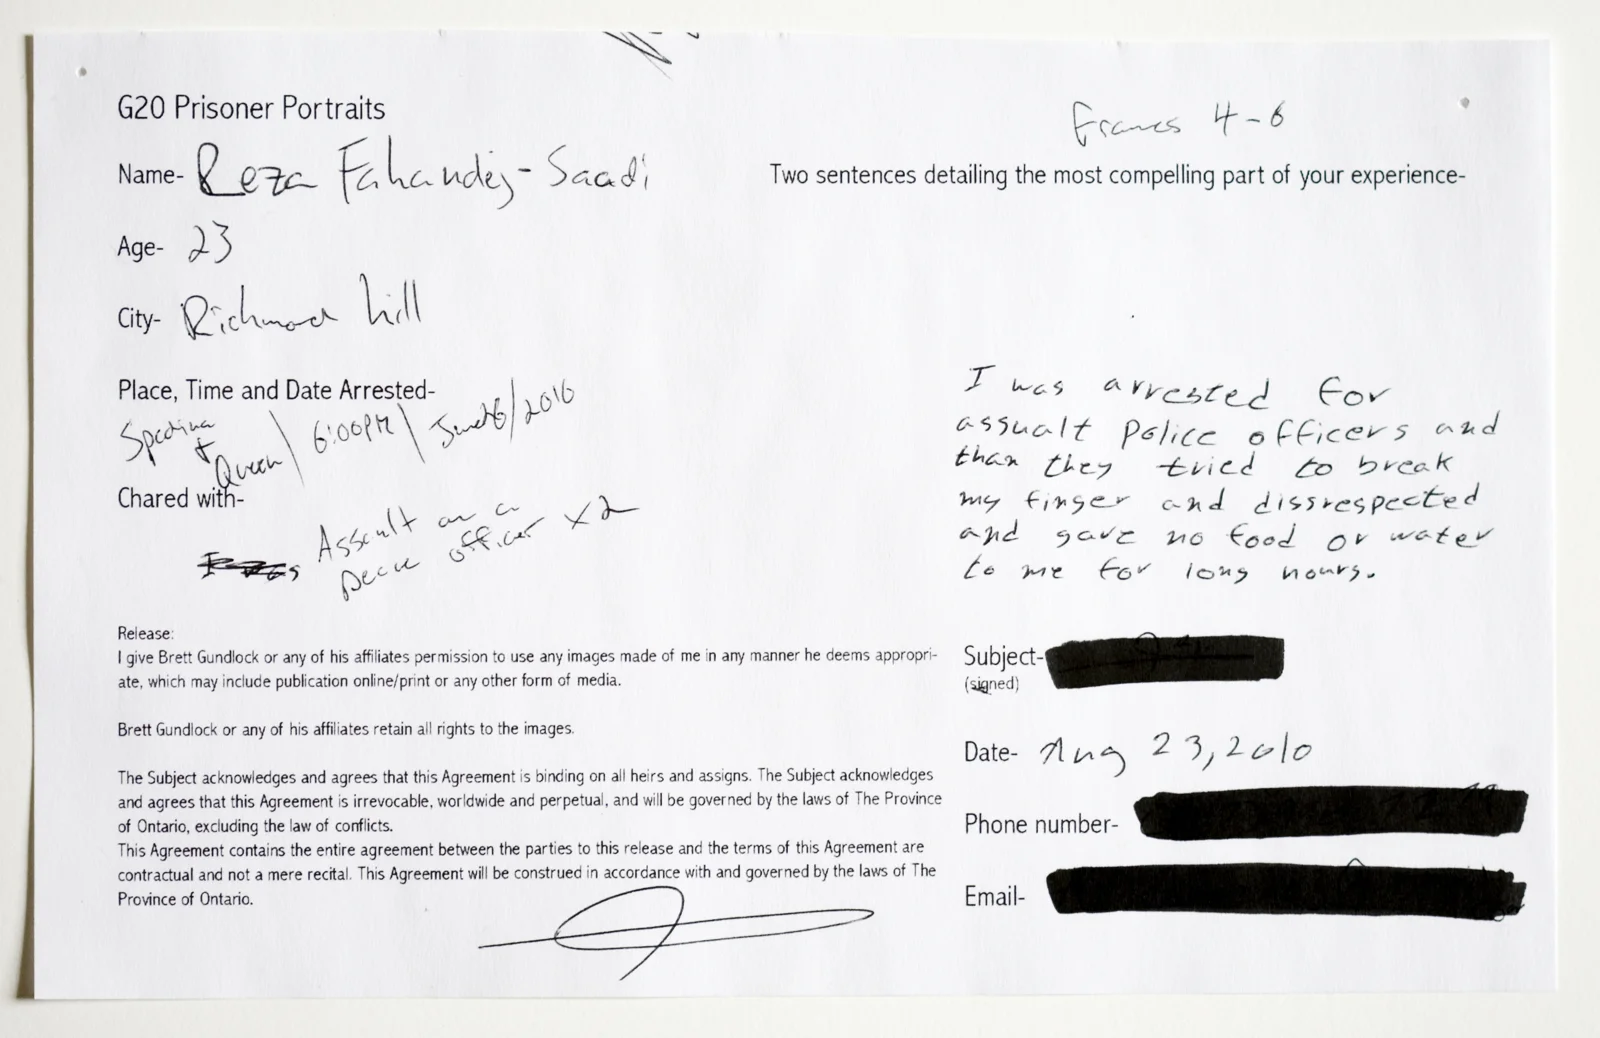 G20 Prisoner Portraits
Frames 4-6
Name- Reza Fahandej-Saadi
Two sentences detailing the most compelling part of your experience-
Age- 23
City- Richmond hill
Place, Time and Date Arrested-
Spadina
+
Queen | 6:00PM | June 26/2010
Chared with-
Assault on a
peace officer x2
I was arrested for
assualt police officers and
than they tried to break
my finger and dissrespected
and gave no food or water
to me for long hours.
Release:
I give Brett Gundlock or any of his affiliates permission to use any images made of me in any manner he deems appropri-
ate, which may include publication online/print or any other form of media.
Brett Gundlock or any of his affiliates retain all rights to the images.
The Subject acknowledges and agrees that this Agreement is binding on all heirs and assigns. The Subject acknowledges
and agrees that this Agreement is irrevocable, worldwide and perpetual, and will be governed by the laws of The Province
of Ontario, excluding the law of conflicts.
This Agreement contains the entire agreement between the parties to this release and the terms of this Agreement are
contractual and not a mere recital. This Agreement will be construed in accordance with and governed by the laws of The
Province of Ontario.
Subject-
(signed)
Date- Aug 23,2010
Phone number-
Email-